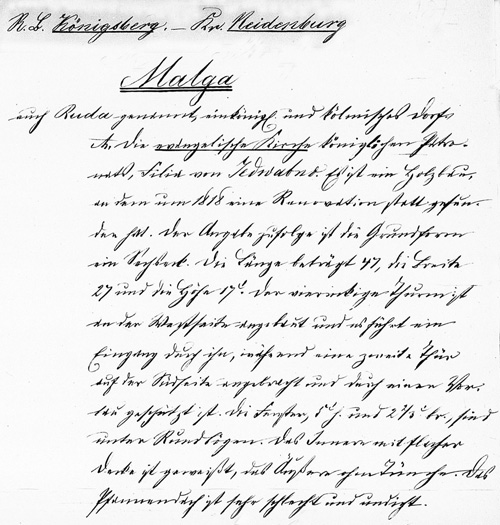 R. B. Königsberg. – Kr. Neidenburg
Malga
auch Ruda genannt, ein königl. und kölmisches Dorf.
A. Die evangelische Kirche königlichen Patro-
nats, Filia von Jedwabno. Es ist ein Holzbau,
an dem um 1818 eine Renovation statt gefun-
den hat. Der Angabe zufolge ist die Grundform
ein Sechseck. Die Länge beträgt 47, die Breite
27 und die Höhe 17'. Der viereckige Thurm ist
an der Westseite angebaut und es führt ein
Eingang durch ihn, während eine zweite Thür
auf der Südseite angebracht und durch einen Vor-
bau geschützt ist. Die Fenster, 5' h. und 2 br., sind
unter Rundbögen. Das Innere mit flacher
Decke ist geweißt, das Äußere ohne Tünche. Das
Pfannendach ist sehr schlecht und undicht.